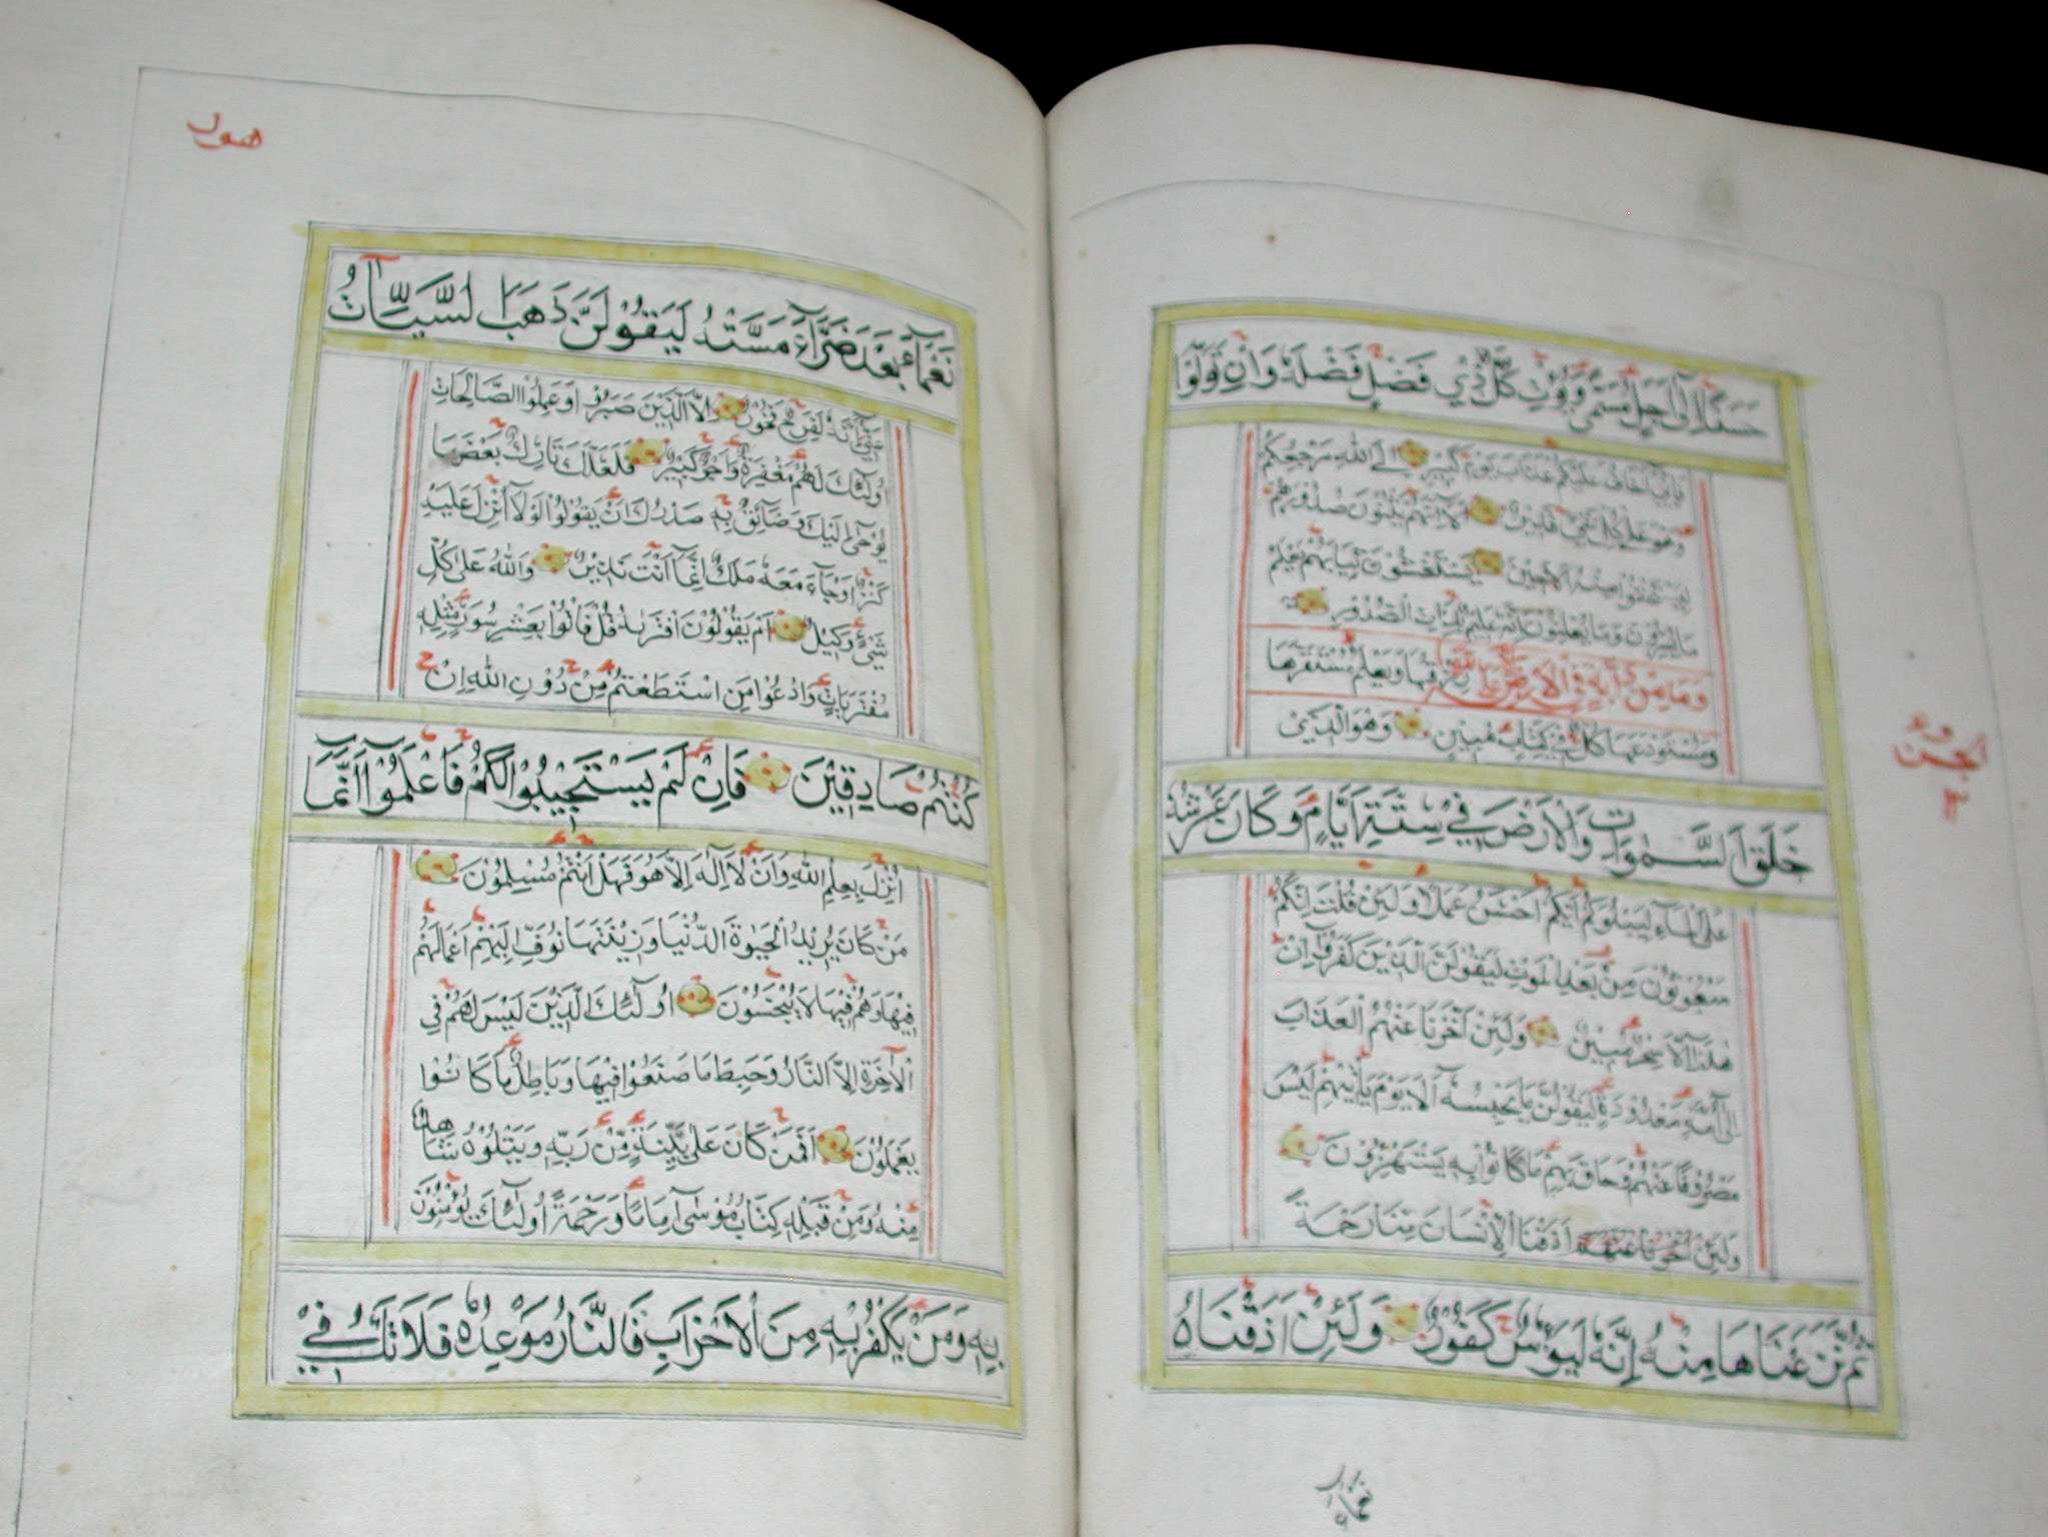 حسنا الى اجل مسمى ويؤت كل ذي فضل فضله وان تولوا
فاني اخاف عليكم عذاب يوم كبير الى الله مرجعكم
وهو على كل شيء قدير الا انهم يثنون صدورهم
ليستخفوا منه الا حين يستغشون ثيابهم يعلم
ما يسرون وما يعلنون انه عليم بذات الصدور
وما من دابة في الارض الا على الله رزقها ويعلم مستقرها
ومستودعها كل في كتاب مبين وهو الذي
خلق السموات والارض في ستة ايام وكان عرشه
على الماء ليبلوكم ايكم احسن عملا ولئن قلت انكم
مبعوثون من بعد الموت ليقولن الذين كفروا ان
هذا الا سحر مبين ولئن اخرنا عنهم العذاب
الى امة معدودة ليقولن ما يحبسه الا يوم ياتيهم ليس
مصروفا عنهم وحاق بهم ما كانوا به يستهزؤن
ولئن اذقنا الانسان منا رحمة
ثم نزعناها منه انه ليؤس كفور ولئن اذقناه
نعماء
نعماء بعد ضراء مسته ليقولن ذهب السيات
عني انه لفرح فخور الا الذين صبروا وعملوا الصالحات
اولئك لهم مغفرة واجر كبير فلعلك تارك بعض ما
يوحى اليك وضائق به صدرك ان يقولوا لولا انزل عليه
كنز او جاء معه ملك انما انت نذير والله على كل
شيء وكيل ام يقولون افتريه قل فاتوا بعشر سور مثله
مفتريات وادعوا من استطعتم من دون الله ان
كنتم صادقين فان لم يستجيبوا لكم فاعلموا انما
انزل بعلم الله وان لا اله الا هو فهل انتم مسلمون
من كان يريد الحيوة الدنيا وزينتها نوف اليهم اعمالهم
فيها وهم فيها لا يبخسون اولئك الذين ليس لهم في
الاخرة الا النار وحبط ما صنعوا فيها وباطل ما كانوا
يعملون افمن كان على بينة من ربه ويتلوه شاهد
منه ومن قبله كتاب موسى اماما ورحمة اولئك يؤمنون
به ومن يكفر به من الاحزاب فالنار موعده فلا تك في